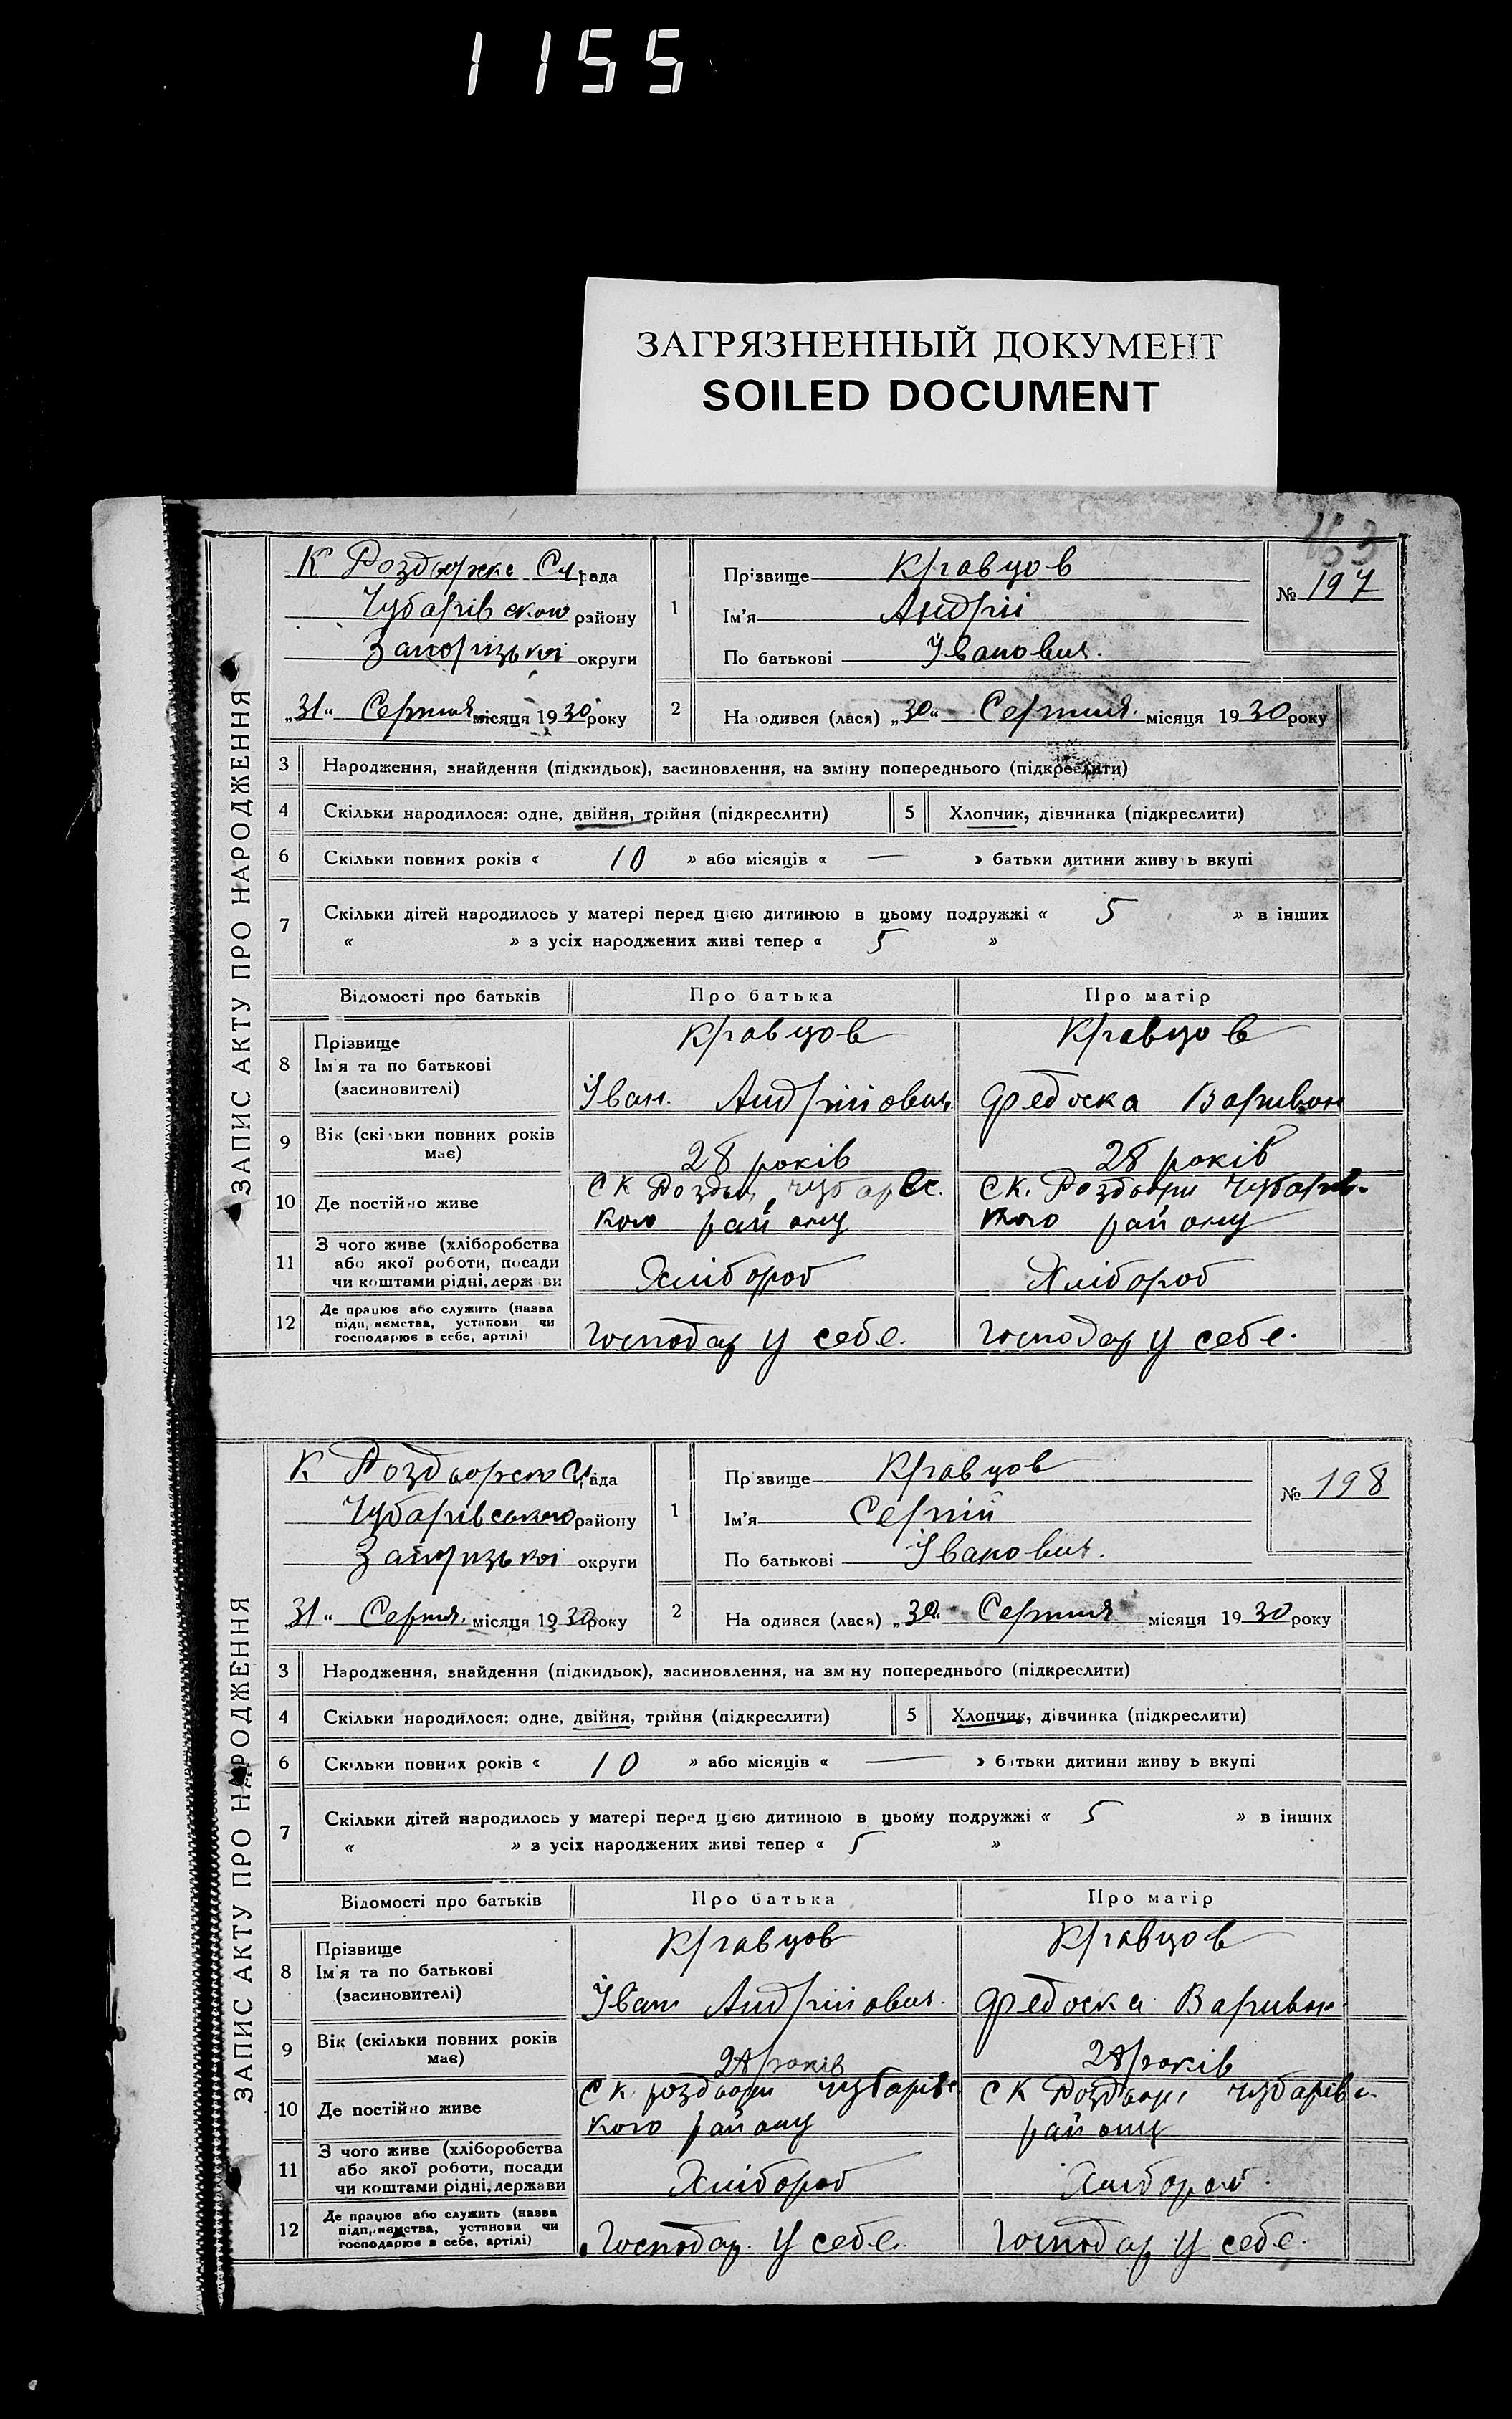 1155
ЗАГРЯЗНЕННЫЙ ДОКУМЕНТ
SOILED DOCUMENT
163
ЗАПИС АКТУ ПРО НАРОДЖЕННЯ
К Роздорске С рада
Чубарівского району
Запорізької округи
„31“ Серпня місяця 1930 року
1
Прізвище Кравцов
Ім'я Андрій
По батькові Іванович.
№ 197
2 На одився (лася) „30“ Серпня місяця 1930 року
3 Народження, знайдення (підкидьок), засиновлення, на зміну попереднього (підкреслити)
4 Скільки народилося: одне, двійня, трійня (підкреслити) 5 Хлопчик, дівчинка (підкреслити)
6 Скільки повних років « 10 » або місяців « — » батьки дитини живу ь вкупі
7 Скільки дітей народилось у матері перед цією дитиною в цьому подружжі « 5 » в інших
« » з усіх народжених живі тепер « 5 »
Відомості про батьків Про батька Про матір
8 Прізвище Кравцов Кравцов
Ім'я та по батькові
(засиновителі) Іван Андрійович Федоска Варивон
9 Вік (скільки повних років
має) 28 років 28 років
10 Де постійно живе СК Роздори Чубарівс. СК. Роздори Чубарів-
кого району кого району
11 З чого живе (хліборобства
або якої роботи, посади
чи коштами рідні, держави Хлібороб Хлібороб
12 Де працює або служить (назва
підприємства, установи чи
господарює в себе, артілі) Господар у себе. Господар у себе.
ЗАПИС АКТУ ПРО НАРОДЖЕННЯ
К Роздорско С рада
Чубарівського району
Запорізької округи
„31“ Серпня. місяця 1930 року
1
Пр звище Кравцов
Ім'я Сергій
По батькові Іванович.
№ 198
2 На одився (лася) „30“ Серпня місяця 1930 року
3 Народження, знайдення (підкидьок), засиновлення, на зм ну попереднього (підкреслити)
4 Скільки народилося: одне, двійня, трійня (підкреслити) 5 Хлопчик, дівчинка (підкреслити)
6 Скільки повних років « 10 » або місяців « — » батьки дитини живу ь вкупі
7 Скільки дітей народилось у матері перед цією дитиною в цьому подружжі « 5 » в інших
« » з усіх народжених живі тепер « 5 »
Відомості про батьків Про батька Про матір
8 Прізвище Кравцов Кравцов
Ім'я та по батькові
(засиновителі) Іван Андрійович. Федоска Варивон.
9 Вік (скільки повних років
має) 28 років 28 років
10 Де постійно живе СК роздори Чубарівс СК Роздори Чубарівс.
кого району району
11 З чого живе (хліборобства
або якої роботи, посади
чи коштами рідні, держави Хлібороб Хлібороб.
12 Де працює або служить (назва
підприємства, установи чи
господарює в себе, артілі) Господар У себе. Господар У себе.